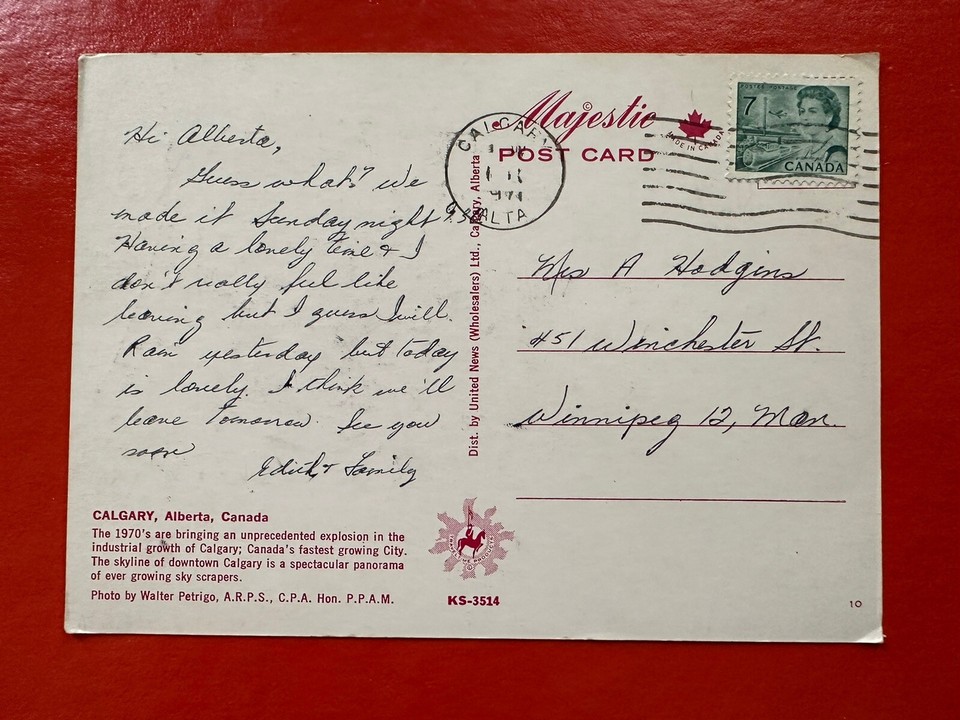 Hi Alberta,
Guess what? We
made it Sunday night 9.30
Having a lovely time & I
don't really feel like
leaving but I guess I will.
Rain yesterday but today
is lovely. I think we'll
leave tomorrow. See you
soon
Edith & Family
CALGARY, Alberta, Canada
The 1970's are bringing an unprecedented explosion in the
industrial growth of Calgary; Canada's fastest growing City.
The skyline of downtown Calgary is a spectacular panorama
of ever growing sky scrapers.
Photo by Walter Petrigo, A.R.P.S., C.P.A. Hon. P.P.A.M.
KS-3514
Dist. by United News (Wholesalers) Ltd., Calgary, Alberta
Majestic
©
POST CARD
MADE IN CANADA
CALGARY
1971
ALTA
POSTES POSTAGE
7
CANADA
Mrs A Hodgins
451 Winchester St.
Winnipeg 12, Man.
10